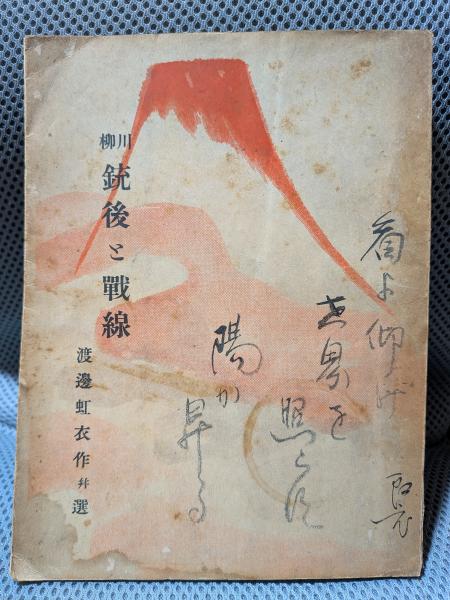 川柳
銃後と戰線
渡邊虹衣作幷選
よ仰げ
世界を
照らす
陽が
昇る